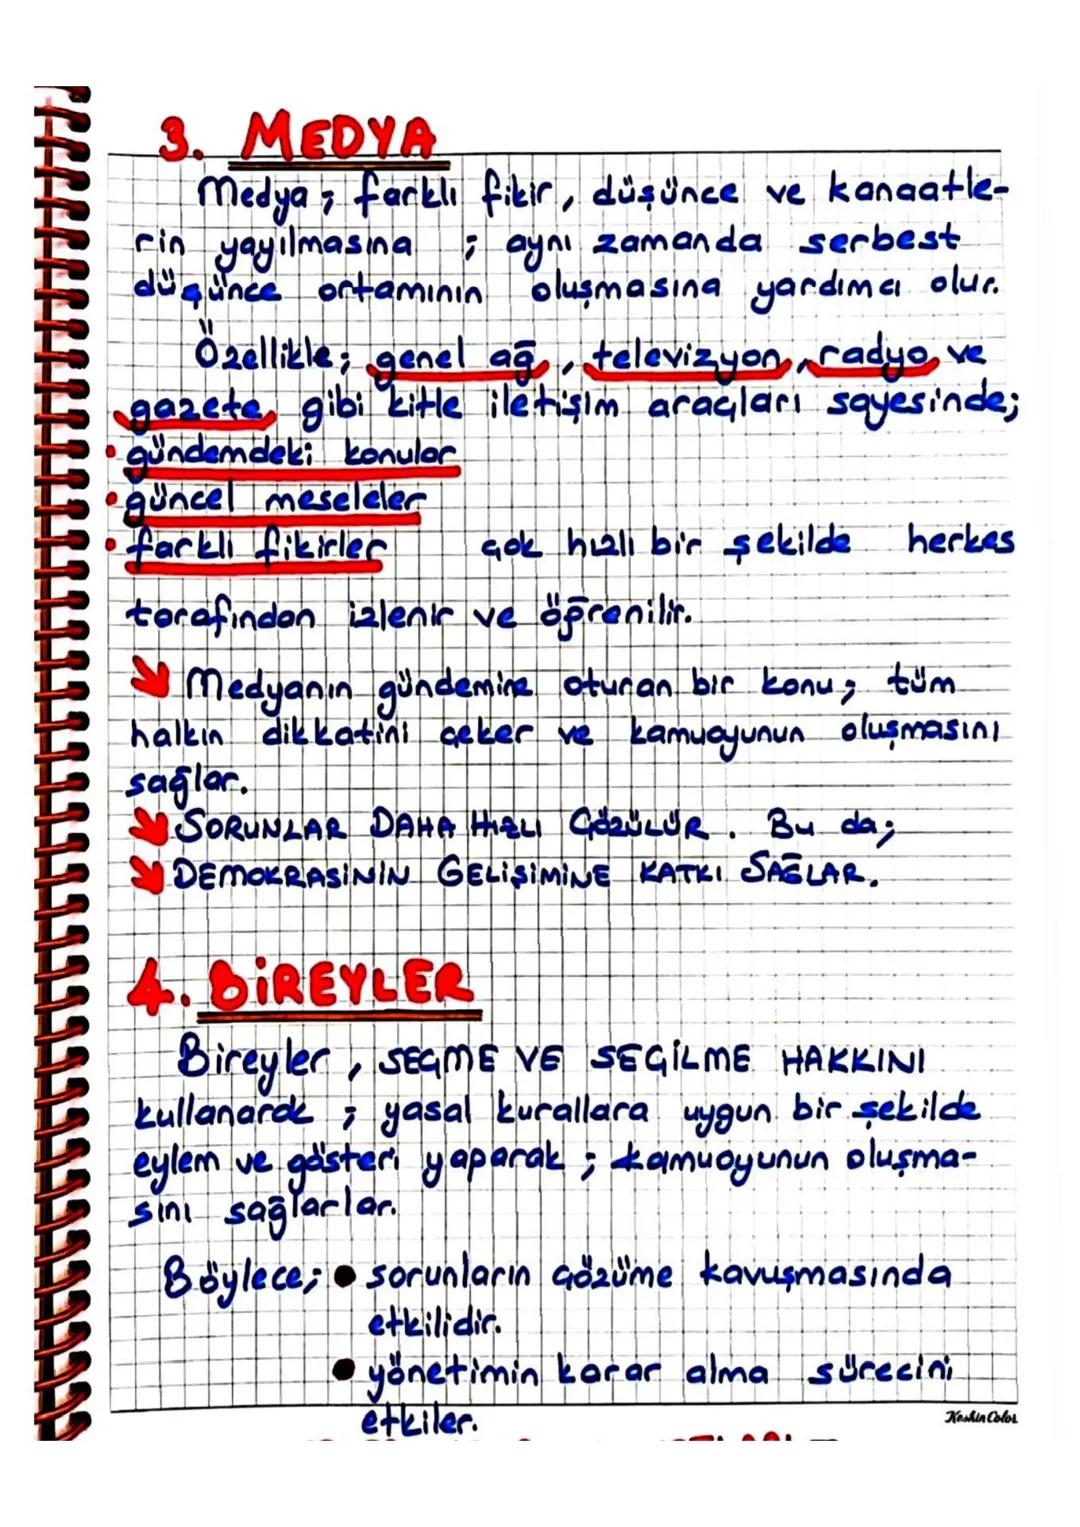 3. MEDYA
Medya; farklı fikir, düşünce ve kanaatle-
rin yayılmasına ; aynı zamanda serbest
düşünce ortamının oluşmasına yardımcı olur.
Özellikle; genel ağ, televizyon, radyo ve
gazete gibi kitle iletişim araçları sayesinde;
• gündemdeki konular
• güncel meseleler
• farklı fikirler çok hızlı bir şekilde herkes
tarafından izlenir ve öğrenilir.
Medyanın gündemine oturan bir konu; tüm
halkın dikkatini çeker ve kamuoyunun oluşmasını
sağlar.
SORUNLAR DAHA HIZLI ÇÖZÜLÜR. Bu da;
DEMOKRASİNİN GELİŞİMİNE KATKI SAĞLAR.
4. BİREYLER
Bireyler, SEÇME VE SEÇİLME HAKKINI
kullanarak ; yasal kurallara uygun bir şekilde
eylem ve gösteri yaparak ; kamuoyunun oluşma-
sını sağlarlar.
Böylece; • sorunların çözüme kavuşmasında
etkilidir.
• yönetimin karar alma sürecini
etkiler.
Keskin Color